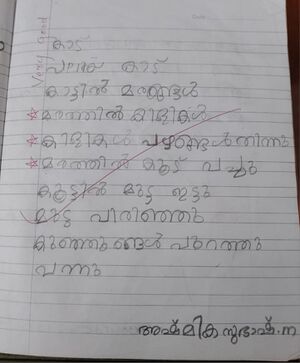 Very Good
കാട്
പച്ച കാട്
കാട്ടിൽ മരങ്ങൾ
മരത്തിൽ കിളികൾ
കിളികൾ പഴങ്ങൾ തിന്നു
മരത്തിൽ കൂട് വച്ചു
കൂട്ടിൽ മുട്ട ഇട്ടു
മുട്ട വിരിഞ്ഞു
കുഞ്ഞുങ്ങൾ പുറത്തു
വന്നു
അഷ്മിക സുഭാഷ്.ന